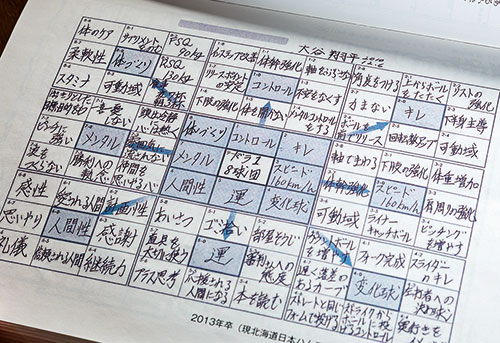 大谷 翔平
体のケア
サプリメントをのむ
FSQ 90kg
インステップ改善
体幹強化
軸をぶらさない
角度をつける
上からボールをたたく
リストの強化
柔軟性
体づくり
RSQ 130kg
リリースポイントの安定
コントロール
不安をなくす
力まない
キレ
下半身主導
スタミナ
可動域
下肢の強化
体を開かない
メンタルコントロールをする
ボールを前でリリース
回転数アップ
可動域
一喜一憂しない
頭は冷静に心は熱く
体づくり
コントロール
キレ
軸でまわる
下肢の強化
体重増加
ピンチに強い
メンタル
雰囲気に流されない
メンタル
ドラ1 8球団
スピード160km/h
体幹強化
スピード160km/h
肩周りの強化
波をつくらない
勝利への執念
仲間を思いやる心
人間性
運
変化球
可動域
ライナーキャッチボール
ピッチングを増やす
感性
愛される人間
計画性
あいさつ
ゴミ拾い
部屋そうじ
カウントボールを増やす
フォーク完成
スライダーのキレ
思いやり
人間性
感謝
道具を大切に使う
運
審判さんへの態度
遅く落差のあるカーブ
変化球
左打者への決め球
礼儀
信頼される人間
継続力
プラス思考
応援される人間になる
本を読む
ストレートと同じフォームで投げる
ストライクからボールに投げるコントロール
奥行きをイ
2013年卒（現北海道日本ハム